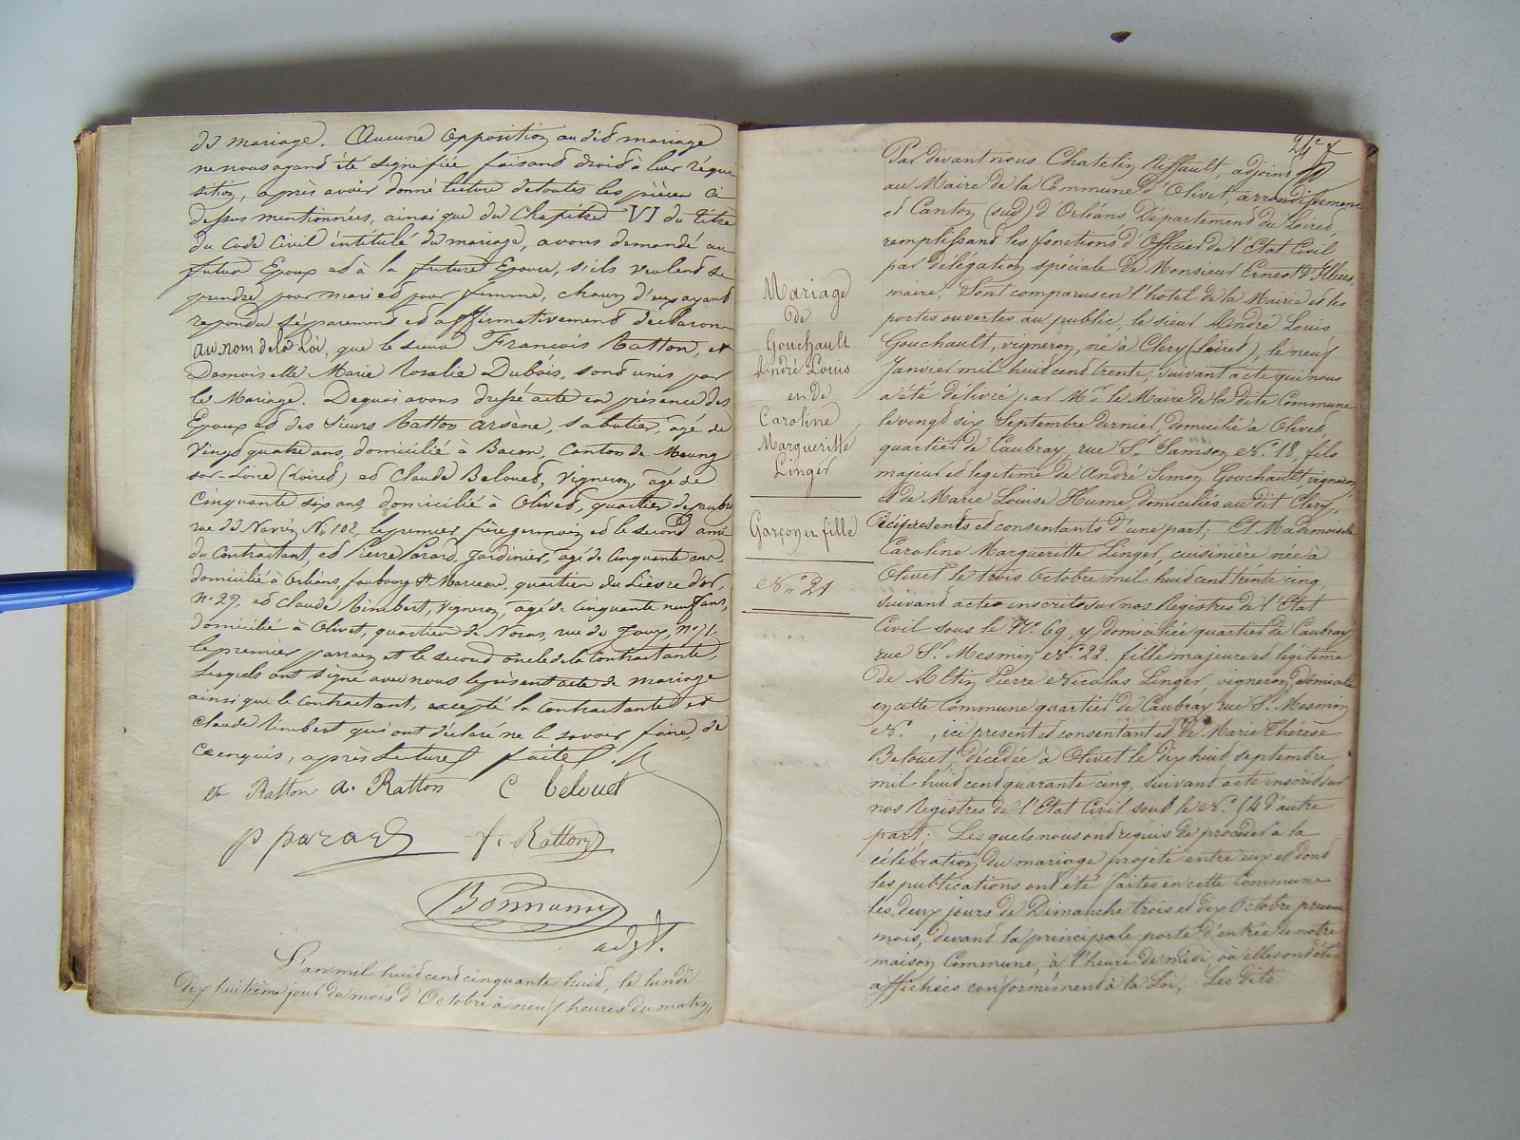 de mariage. Aucune opposition au dit mariage
ne nous ayant été signifiée faisant droit à leur réqui
sition, après avoir donné lecture de toutes les pièces ci
dessus mentionnées, ainsi que du Chapitre VI du titre
du Code Civil intitulé du mariage, avons demandé au
futur Epoux et à la future Epouse, s'ils veulent se
prendre pour mari et pour femme, chacun d'eux ayant
repondu séparément et affirmativement declarons
au nom de la Loi, que le sieur François Ratton, et
Demoiselle Marie Rosalie Dubois, sont unis par
le Mariage. De quoi avons dressé acte en présence des
Epoux et des Sieurs Ratton Arsène, sabotier, agé de
Vingt quatre ans, domicilié à Bacon, Canton de Meung
sur-Loire (Loiret) et Claude Belouet, Vigneron, agé de
Cinquante six ans domicilié à Olivet, quartier de
rue du No 102, le premier frère germain et le second ami
du Contractant, et Pierre Parard, Jardinier, agé de cinquante ans,
domicilié à Orléans, faubourg St Marceau, quartier du Lièvre d'or,
no 29, et Claude Rimbert, Vigneron, agé de cinquante neuf ans,
domicilié à Olivet, quartier de rue de no 71.
le premier parrain et le second oncle de la Contractante,
lesquels ont signé avec nous le présent acte de mariage
ainsi que le Contractant, excepté la Contractante et
Claude Rimbert qui ont déclaré ne le savoir faire, de
ce enquis, après Lecture faite.
Ratton a. Ratton C belouet
p parard f. Ratton
Bonnamy
adjt.
L'an mil huit cent cinquante huit, le lundi
Dix huitième jour du mois d'Octobre à neuf heures du matin,
24e
Par devant nous Chatelin Riffault, adjoint
au Maire de la Commune d'Olivet, arrondissement
et Canton (sud) d'Orléans Département du Loiret,
remplissant les fonctions d'Officier de l'Etat Civil
par délégation spéciale de Monsieur Ernest
maire, Sont comparus en l'hotel de la Mairie et les
portes ouvertes au public, le sieur André Louis
Gouchault, vigneron, né à Cléry (Loiret), le neuf
Janvier mil huit cent trente, suivant acte qui nous
a été délivré par Mr le Maire de la dite Commune
le vingt six Septembre dernier, domicilié à Olivet
quartier de Caubray, rue St Samson No 18, fils
majeur et légitime de André Simon Gouchault, vigneron
et de Marie Louise Hume, domiciliés au dit Cléry,
ici présents et consentants d'une part; Et Mademoiselle
Caroline Margueritte Linger, cuisinière née à
Olivet le trois Octobre mil huit cent trente cinq
suivant acte inscrit sur nos Registres de l'Etat
Civil sous le No 69, y domiciliée quartier de Caubray
rue St Mesmin No 22, fille majeure et légitime
de Pierre Nicolas Linger, vigneron, domicilié
en cette Commune quartier de Caubray rue St Mesmin
No , ici présent et consentant et de Marie Thérèse
Belouet, décédée à Olivet le dix huit septembre
mil huit cent quarante cinq, suivant acte inscrit sur
nos Registres de l'Etat Civil sous le No d'autre
part. Lesquels nous ont requis de procéder à la
célébration du mariage projeté entre eux et dont
les publications ont été faites en cette Commune
les deux jours de Dimanche trois et dix Octobre present
mois, devant la principale porte d'entrée de notre
maison Commune, à l'heure de midi, où elles ont été
affichées conformément à la Loi; Les dits
Mariage
de
Gouchault
André Louis
et de
Caroline
Margueritte
Linger
Garçon et fille
No 21